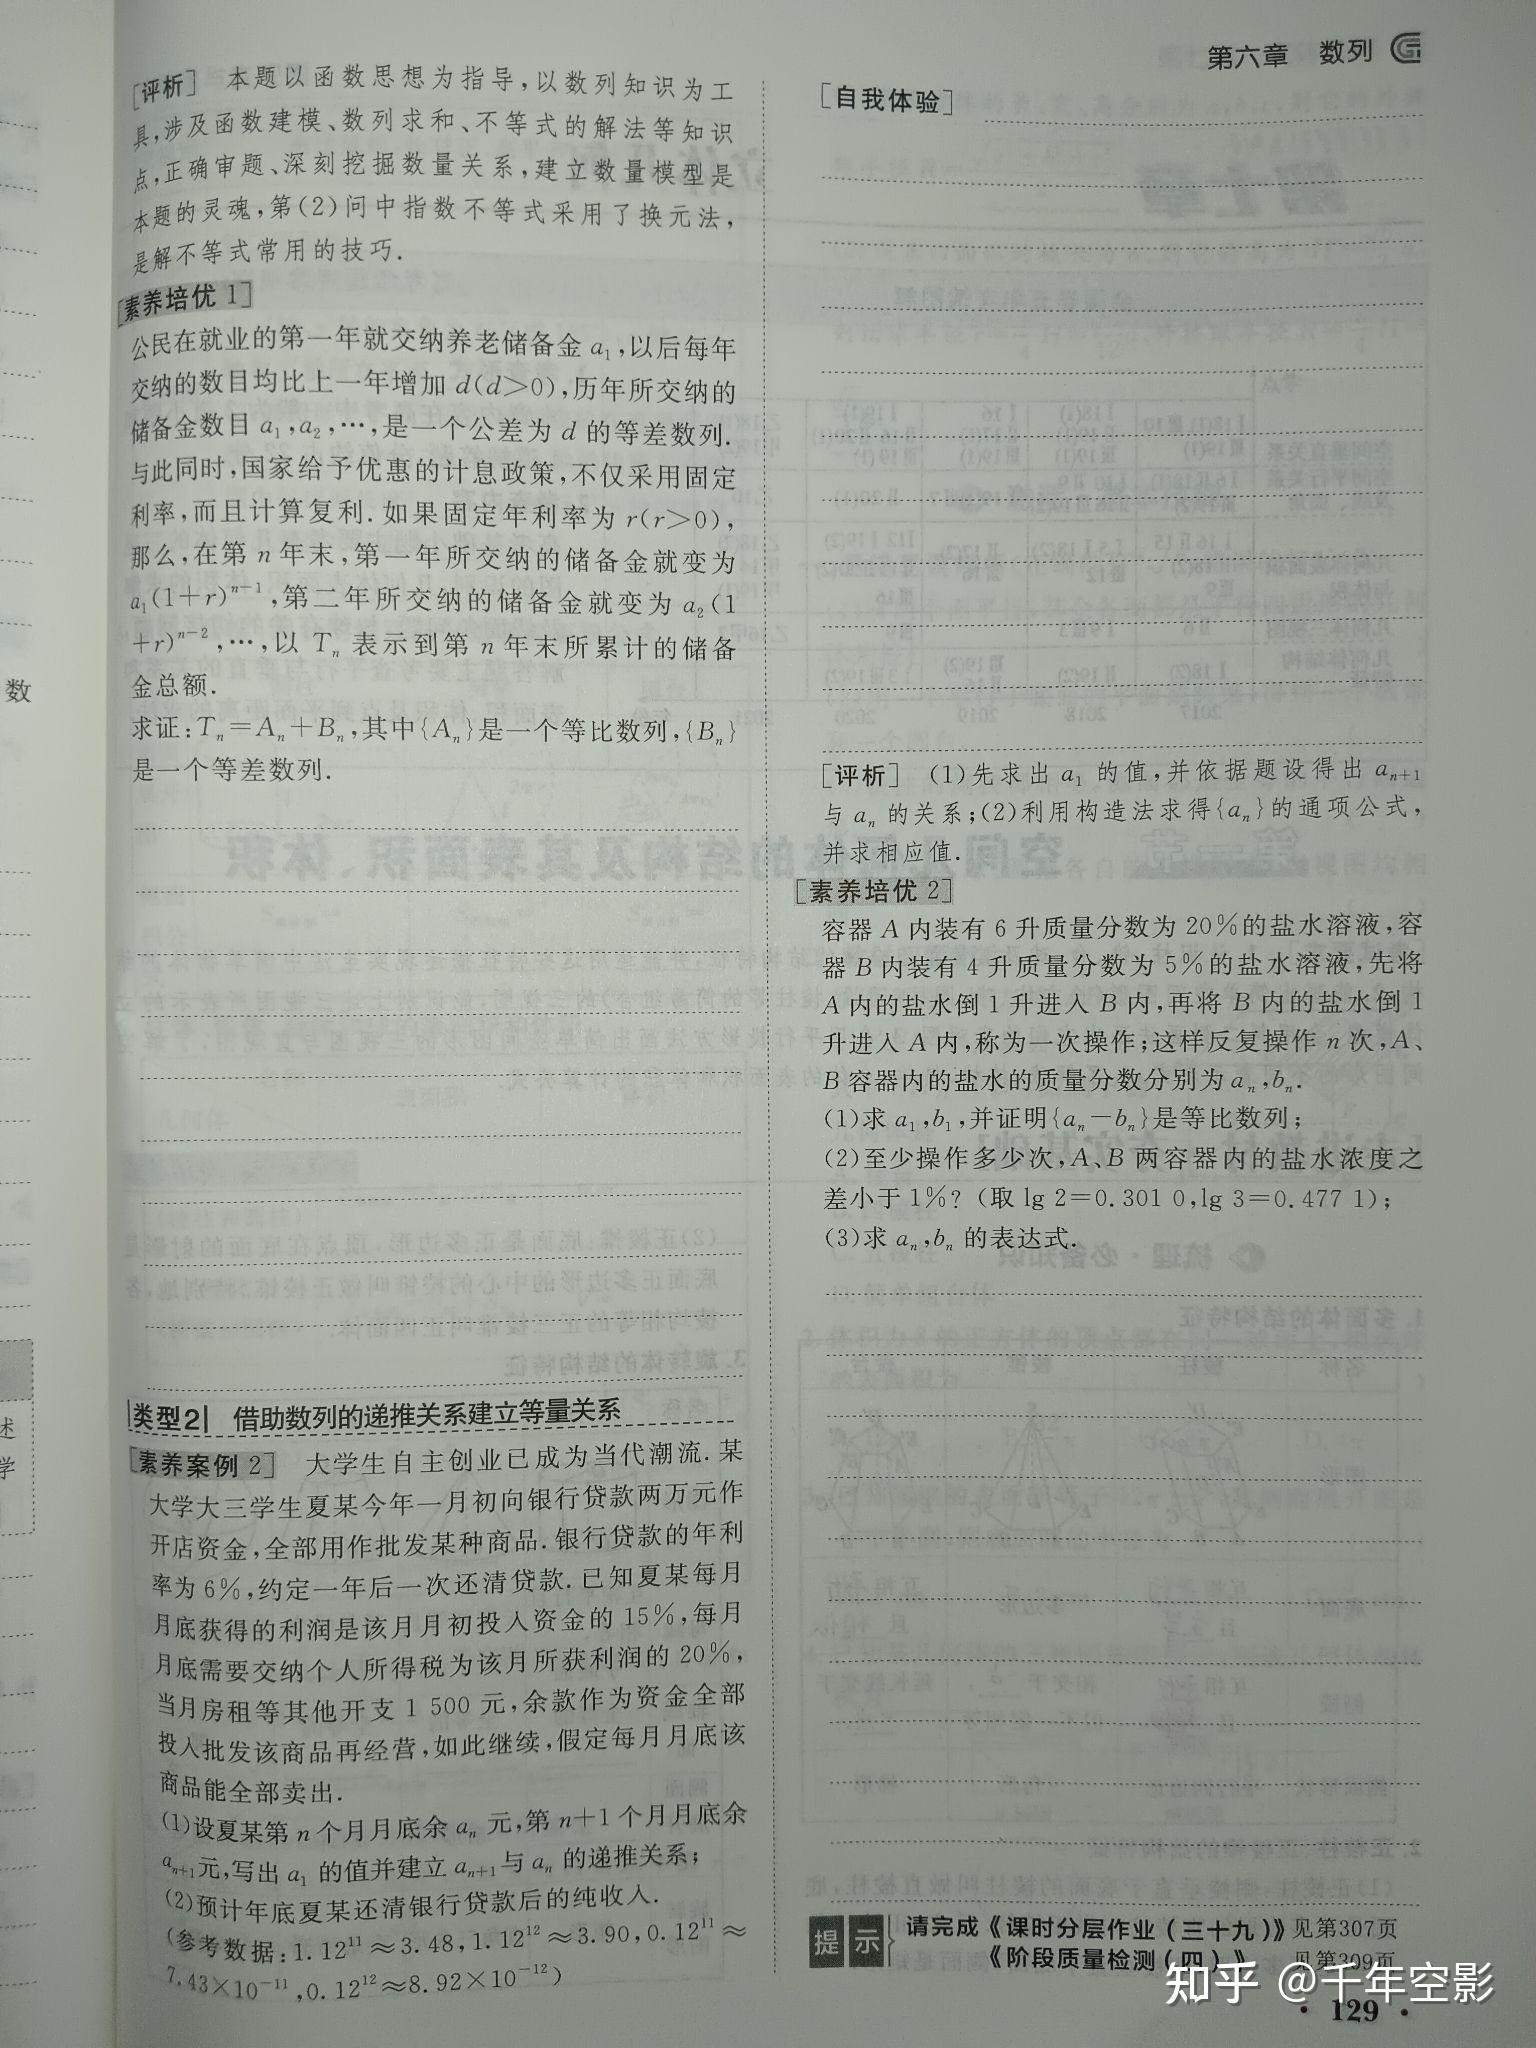 第六章 数列
[评析] 本题以函数思想为指导,以数列知识为工
具,涉及函数建模、数列求和、不等式的解法等知识
点,正确审题、深刻挖掘数量关系,建立数量模型是
本题的灵魂,第(2)问中指数不等式采用了换元法,
是解不等式常用的技巧.
[素养培优1]
公民在就业的第一年就交纳养老储备金a₁,以后每年
交纳的数目均比上一年增加d(d>0),历年所交纳的
储备金数目a₁,a₂,…,是一个公差为d的等差数列.
与此同时,国家给予优惠的计息政策,不仅采用固定
利率,而且计算复利.如果固定年利率为r(r>0),
那么,在第n年末,第一年所交纳的储备金就变为
a₁(1+r)ⁿ⁻¹,第二年所交纳的储备金就变为a₂(1
+r)ⁿ⁻²,…,以Tₙ表示到第n年末所累计的储备
金总额.
求证:Tₙ=Aₙ+Bₙ,其中{Aₙ}是一个等比数列,{Bₙ}
是一个等差数列.
类型2 借助数列的递推关系建立等量关系
[素养案例2] 大学生自主创业已成为当代潮流.某
大学大三学生夏某今年一月初向银行贷款两万元作
开店资金,全部用作批发某种商品.银行贷款的年利
率为6%,约定一年后一次还清贷款.已知夏某每月
月底获得的利润是该月月初投入资金的15%,每月
月底需要交纳个人所得税为该月所获利润的20%,
当月房租等其他开支1 500元,余款作为资金全部
投入批发该商品再经营,如此继续,假定每月月底该
商品能全部卖出.
(1)设夏某第n个月月底余aₙ元,第n+1个月月底余
aₙ₊₁元,写出a₁的值并建立aₙ₊₁与aₙ的递推关系;
(2)预计年底夏某还清银行贷款后的纯收入.
(参考数据:1.12¹¹≈3.48,1.12¹²≈3.90,0.12¹¹≈
7.43×10⁻¹¹,0.12¹²≈8.92×10⁻¹²)
[自我体验]
[评析] (1)先求出a₁的值,并依据题设得出aₙ₊₁
与aₙ的关系;(2)利用构造法求得{aₙ}的通项公式,
并求相应值.
[素养培优2]
容器A内装有6升质量分数为20%的盐水溶液,容
器B内装有4升质量分数为5%的盐水溶液,先将
A内的盐水倒1升进入B内,再将B内的盐水倒1
升进入A内,称为一次操作;这样反复操作n次,A、
B容器内的盐水的质量分数分别为aₙ,bₙ.
(1)求a₁,b₁,并证明{aₙ-bₙ}是等比数列;
(2)至少操作多少次,A、B两容器内的盐水浓度之
差小于1%?(取lg 2=0.301 0,lg 3=0.477 1);
(3)求aₙ,bₙ的表达式.
提示 请完成《课时分层作业(三十九)》见第307页
《阶段质量检测(四)》 见第309页
知乎 @千年空影
·129·
数
述
学